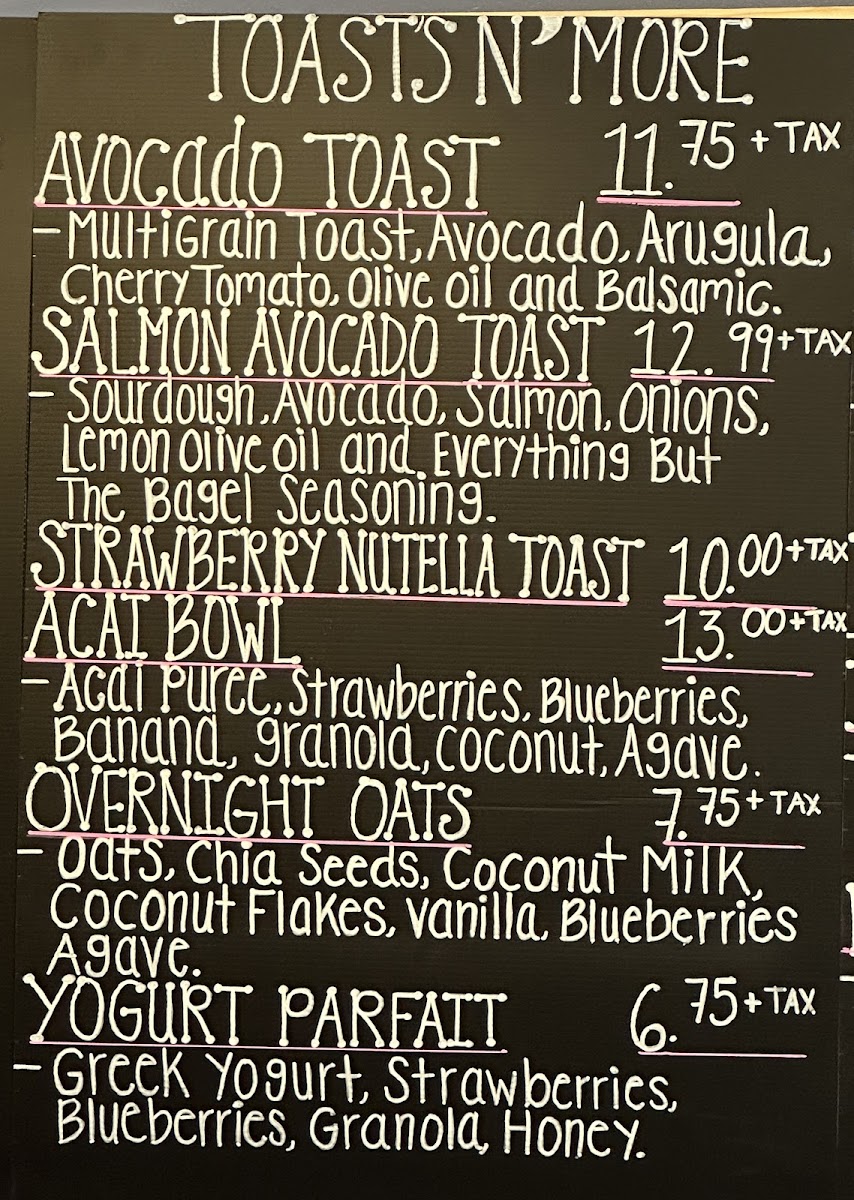 TOAST'S N' MORE
AVOCADO TOAST 11.75 + TAX
- Multigrain Toast, Avocado, Arugula,
Cherry Tomato, Olive oil and Balsamic.
SALMON AVOCADO TOAST 12.99 + TAX
- Sourdough, Avocado, Salmon, Onions,
Lemon olive oil and Everything But
The Bagel Seasoning.
STRAWBERRY NUTELLA TOAST 10.00 + TAX
ACAI BOWL 13.00 + TAX
- Acai Puree, Strawberries, Blueberries,
Banana, granola, coconut, Agave.
OVERNIGHT OATS 7.75 + TAX
- Oats, Chia Seeds, Coconut Milk,
Coconut Flakes, vanilla, Blueberries
Agave.
YOGURT PARFAIT 6.75 + TAX
- Greek Yogurt, Strawberries,
Blueberries, Granola, Honey.